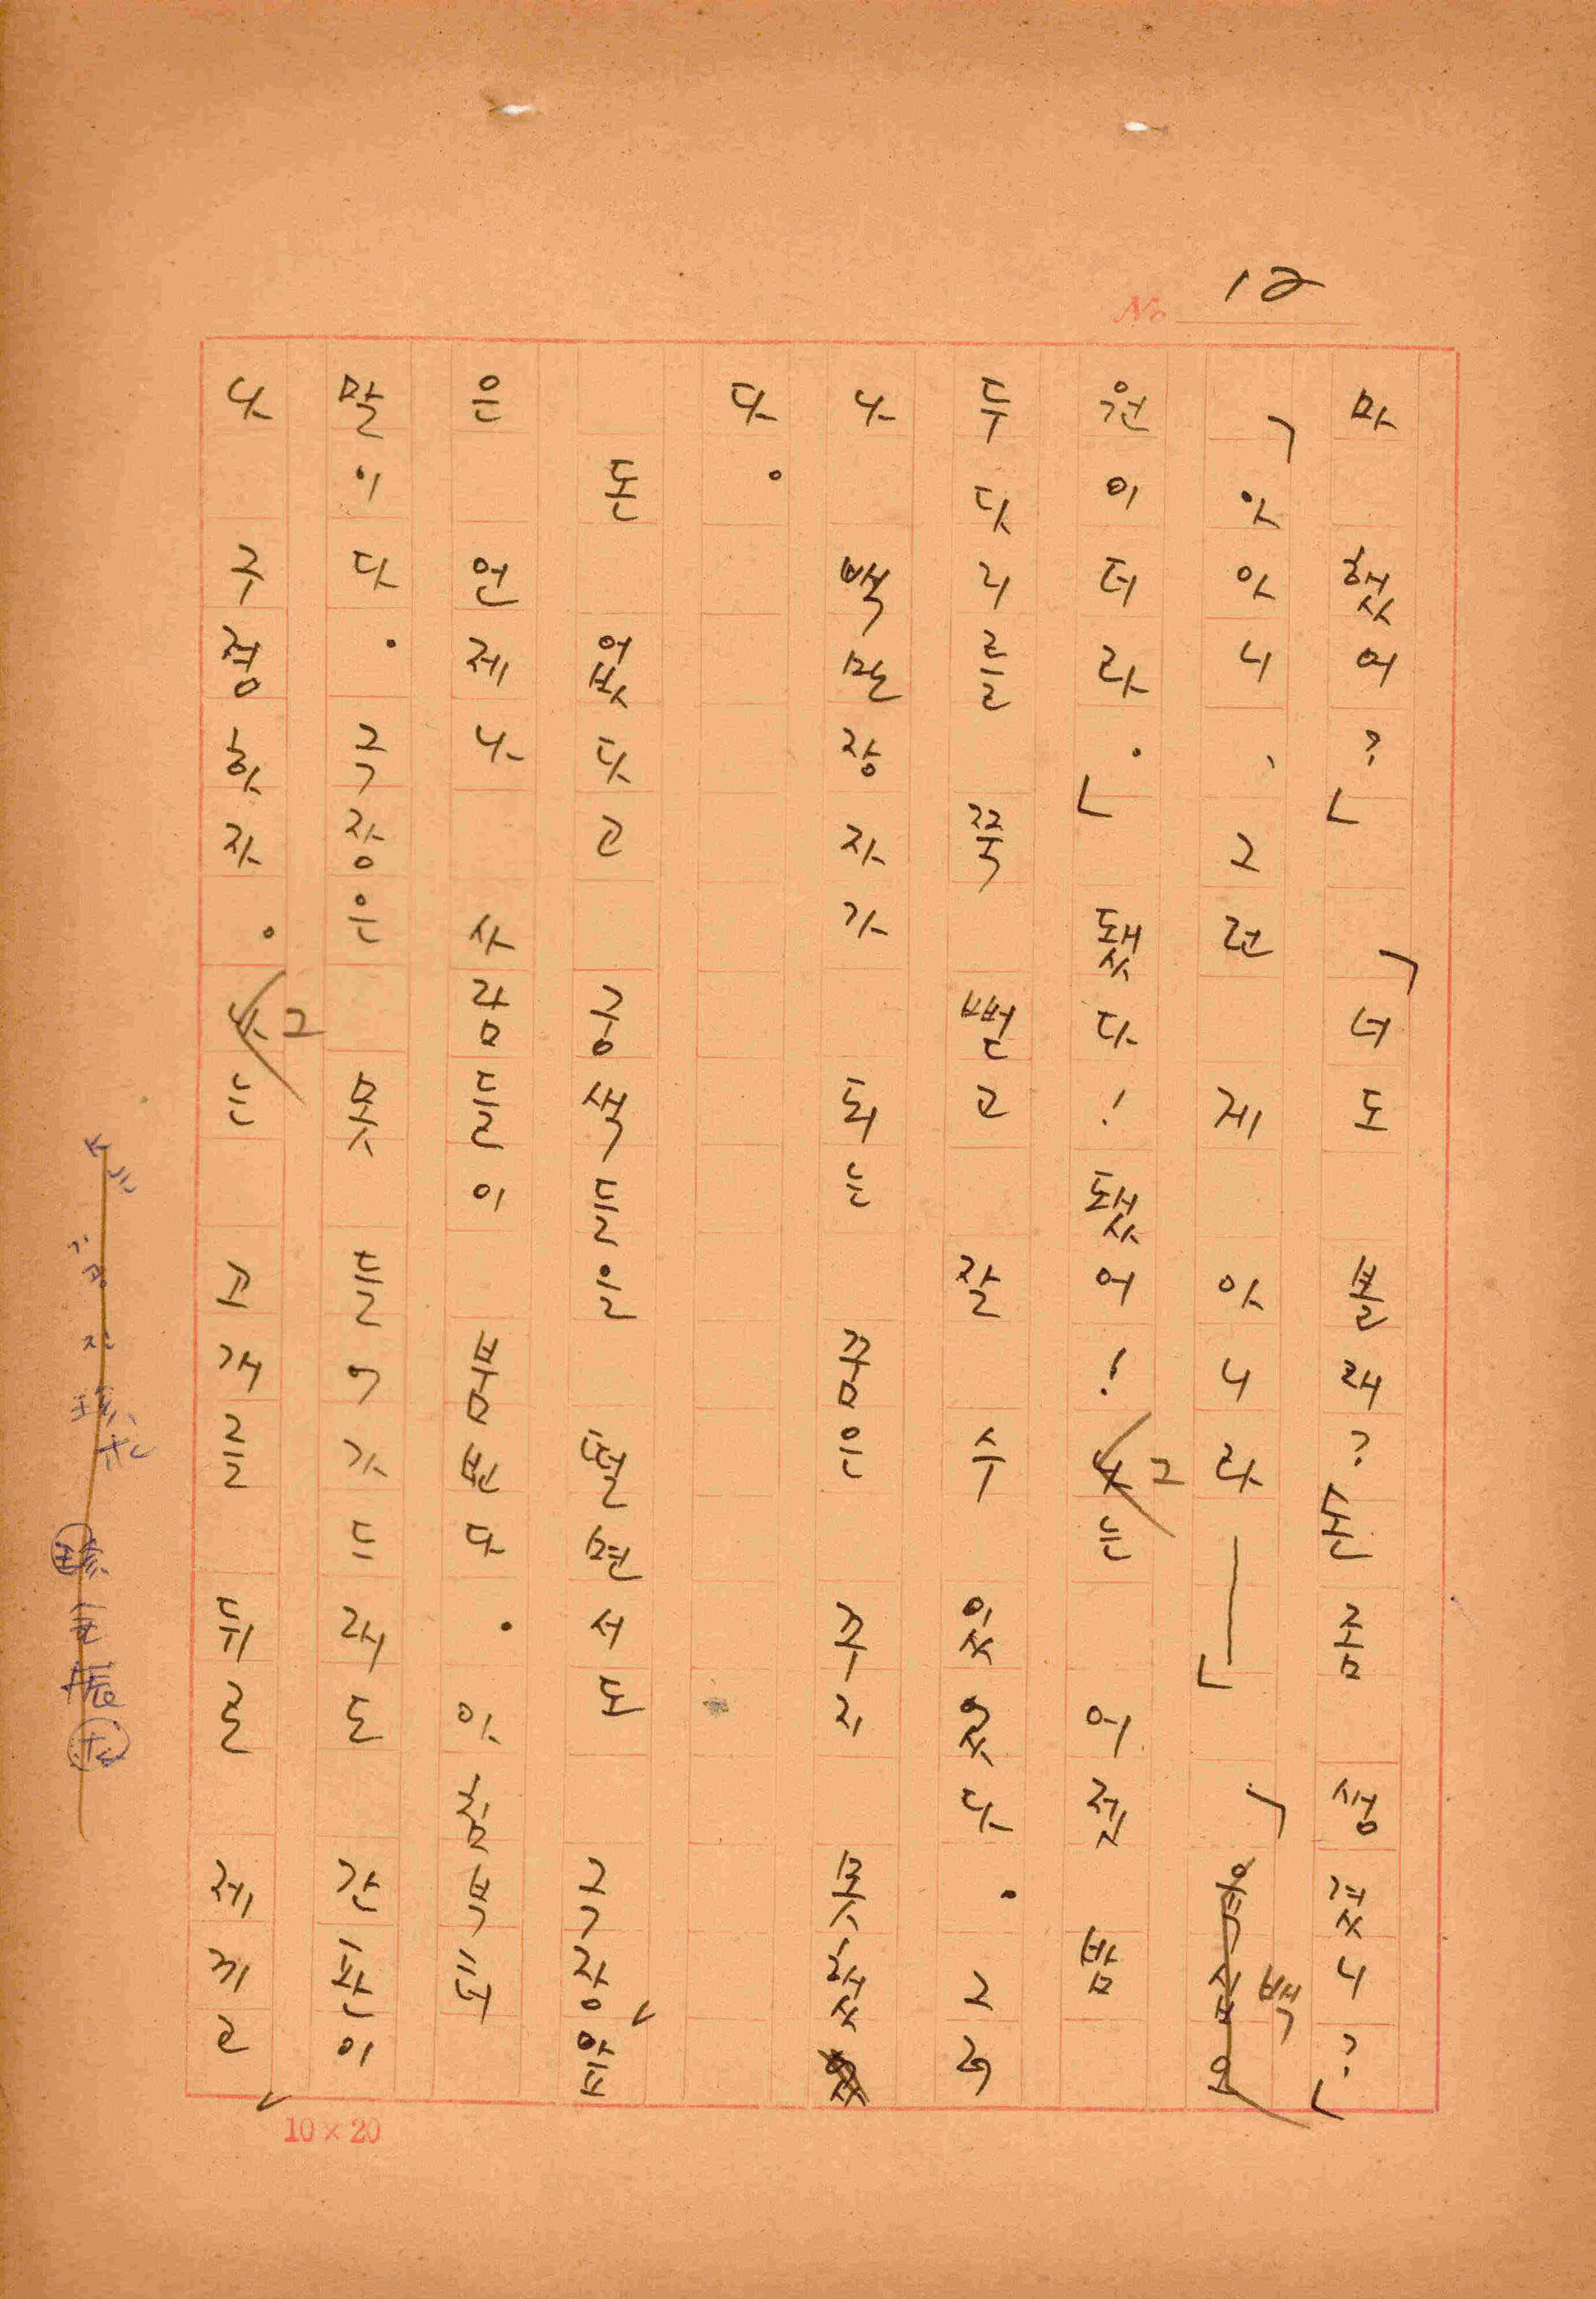 No 12
마 했어?」 「너도 볼래? 돈 좀 생겼니?」
「아아니, 그런 게 아니라――」 「백
원이더라.」 됐다! 됐어! 그는 어젯밤
두 다리를 쭉 뻗고 잘 수 있었다. 그러
나 백만장자가 되는 꿈은 꾸지 못했
다.
돈 없다고 궁색들은 떨면서도 극장앞
은 언제나 사람들이 붐빈다. 아침부터
말이다. 극장은 못 들어가드래도 간판이
나 구경하자. 그는 고개를 뒤로 제끼고
10×20